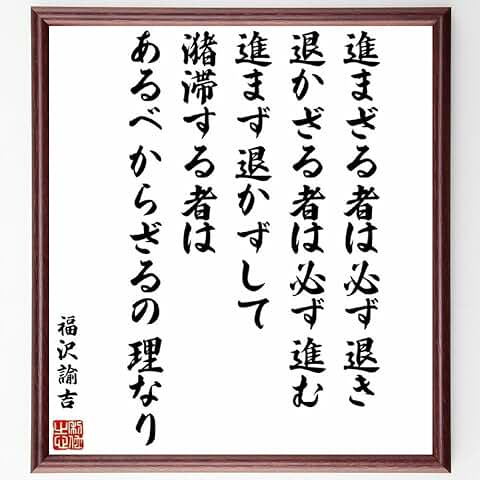 進まざる者は必ず退き
退かざる者は必ず進む
進まず退かずして
潴滞する者は
あるべからざるの理なり
福沢諭吉